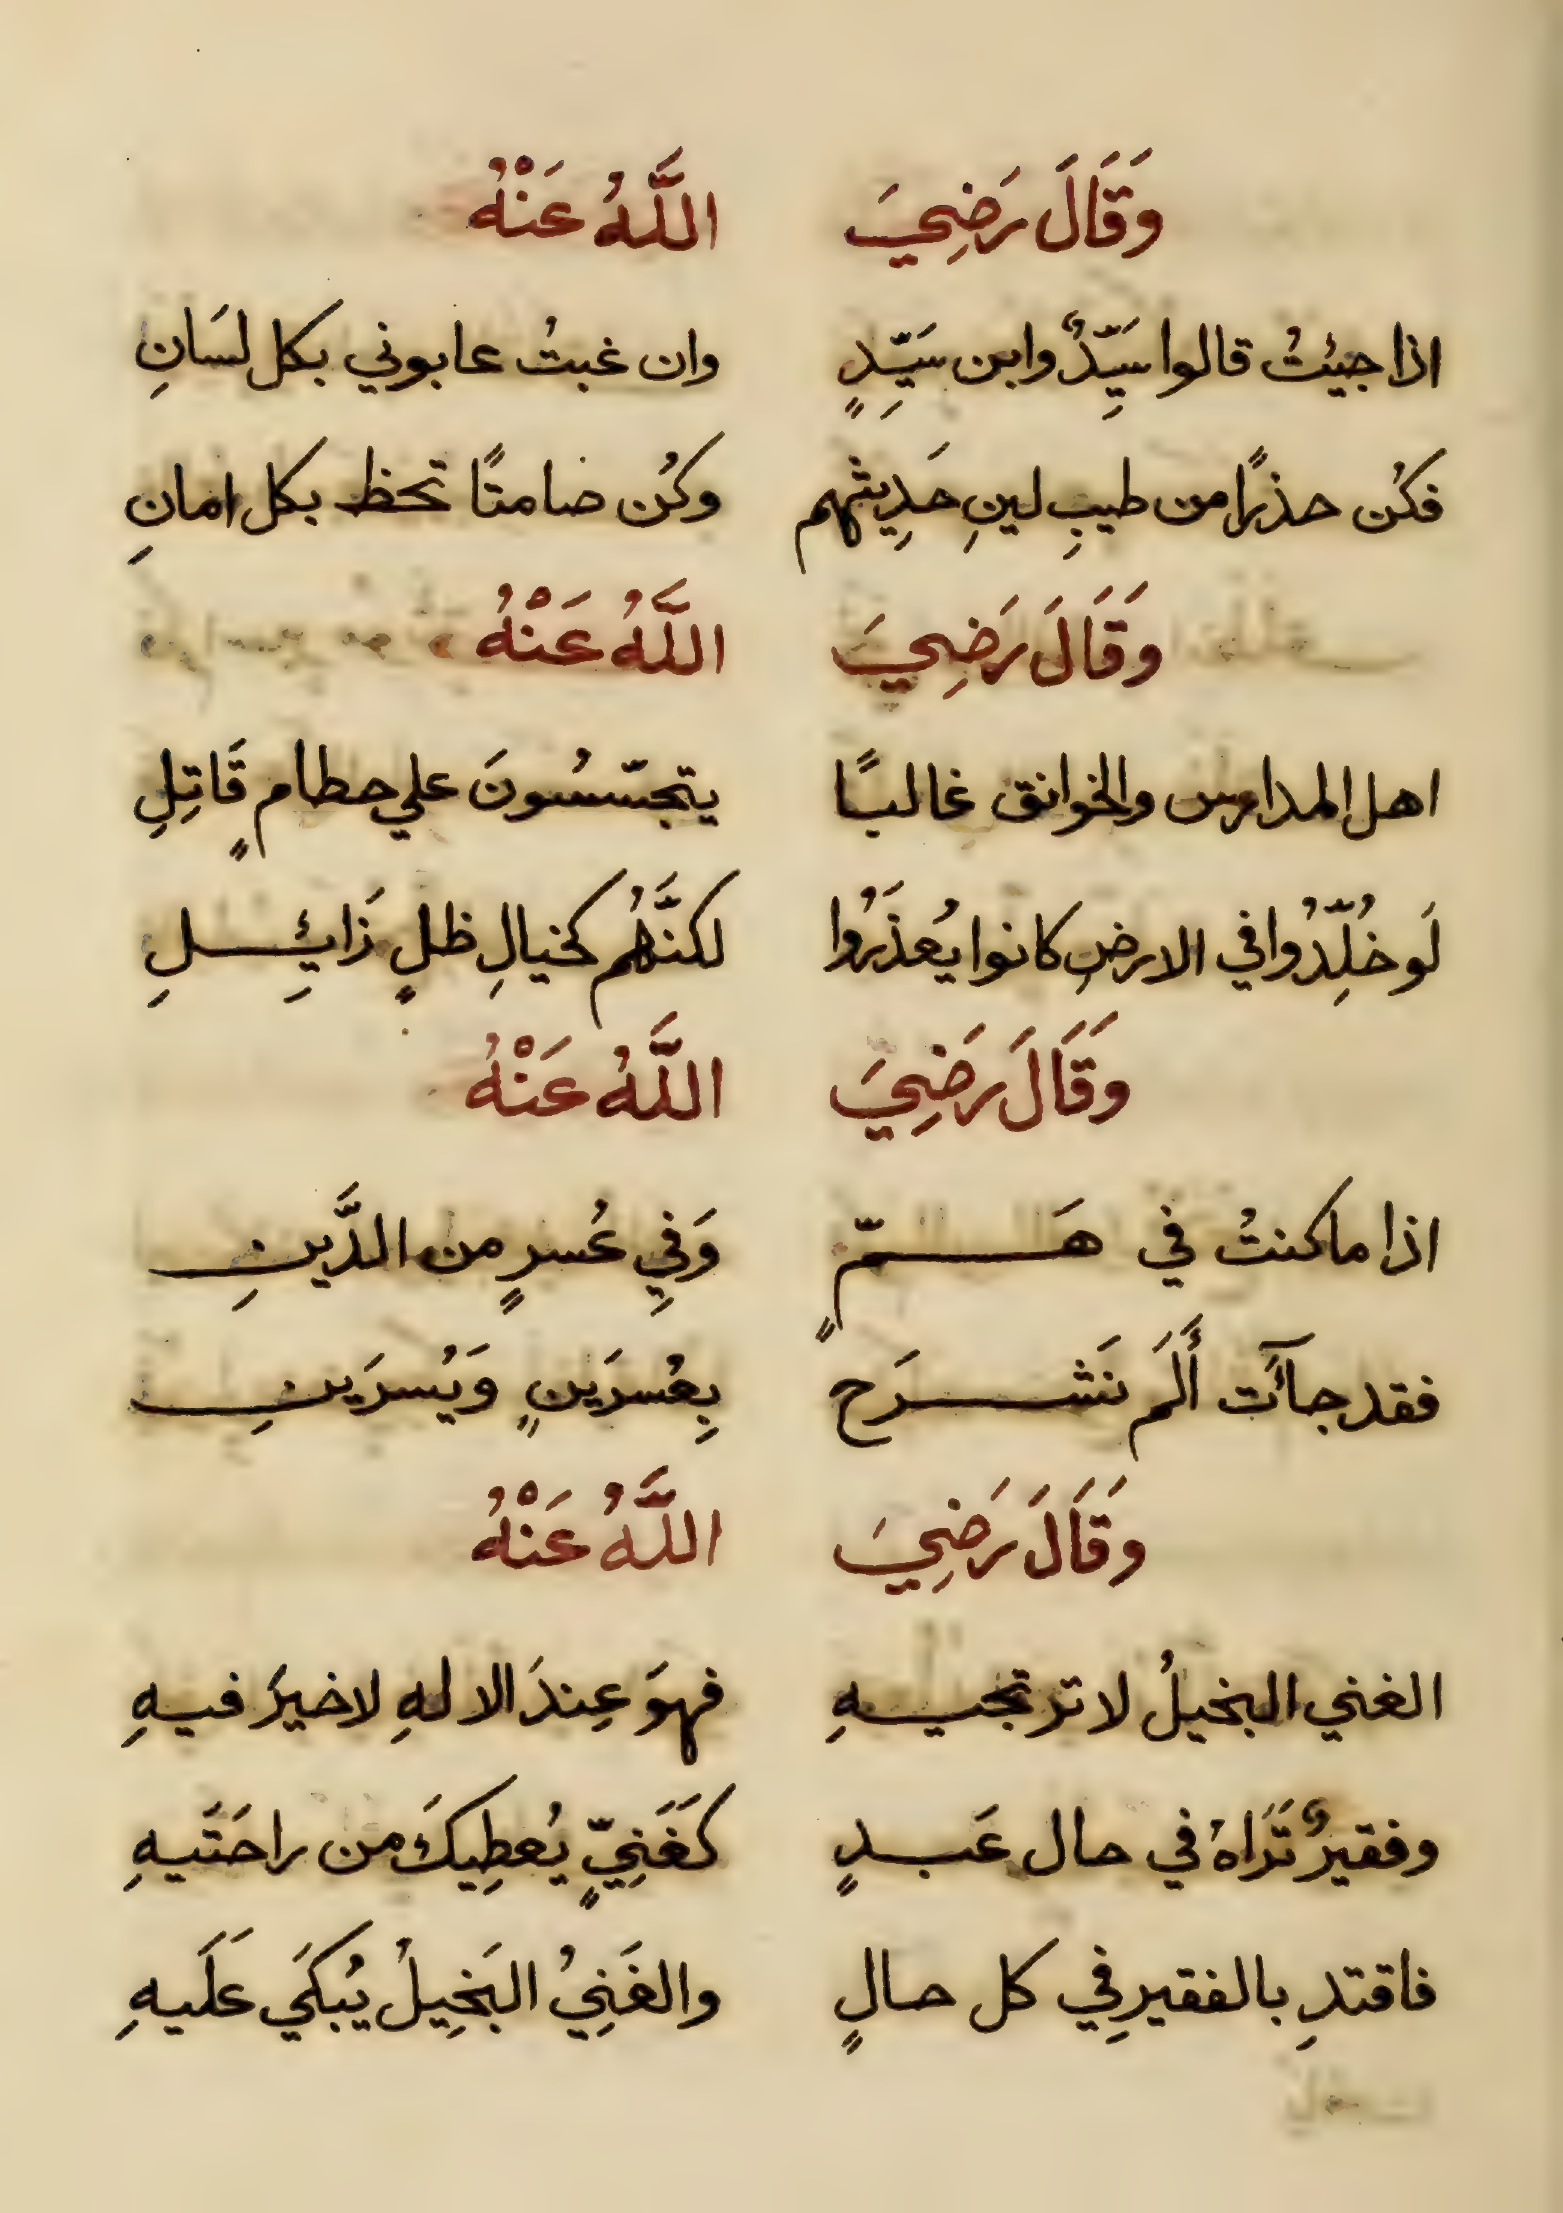 وَقَالَ رَضِيَ اللَّهُ عَنْهُ
اذا جيئتُ قالوا سَيِّدٌ وابن سَيّدٍ وان غبتُ عابوني بكل لسَانِ
فكُن حذرًا من طيبِ لينِ حَدِيثهم وكُن ضامتًا تحظ بكل امانِ
وَقَالَ رَضِيَ اللَّهُ عَنْهُ
اهل المدارس والخوانق غالبًا يتجسّسُونَ علي حطامٍ قَاتِلِ
لَو خُلِّدُوا في الارضِ كانوا يُعذَرُوا لكنَّهُم كخيالِ ظلٍ زَائِلِ
وَقَالَ رَضِيَ اللَّهُ عَنْهُ
اذا ما كنتُ في هَمّ‍ٍ وَفِي عُسرٍ من الدَّينِ
فقد جآئَت أَلَم نَشرَح بِعُسرَينٍ وَيُسرَينِ
وَقَالَ رَضِيَ اللَّهُ عَنْهُ
الغني البخيلُ لا ترتجيهِ فهوَ عِندَ الالهِ لا خيرَ فيهِ
وفقيرٌ تَرَاهُ في حال عَبدٍ كَغَنِيٍّ يُعطِيكَ من راحَتَيهِ
فاقتدِ بالفقيرِ فِي كل حالٍ والغَنِيُ البَخِيلُ يُبكَي عَلَيهِ